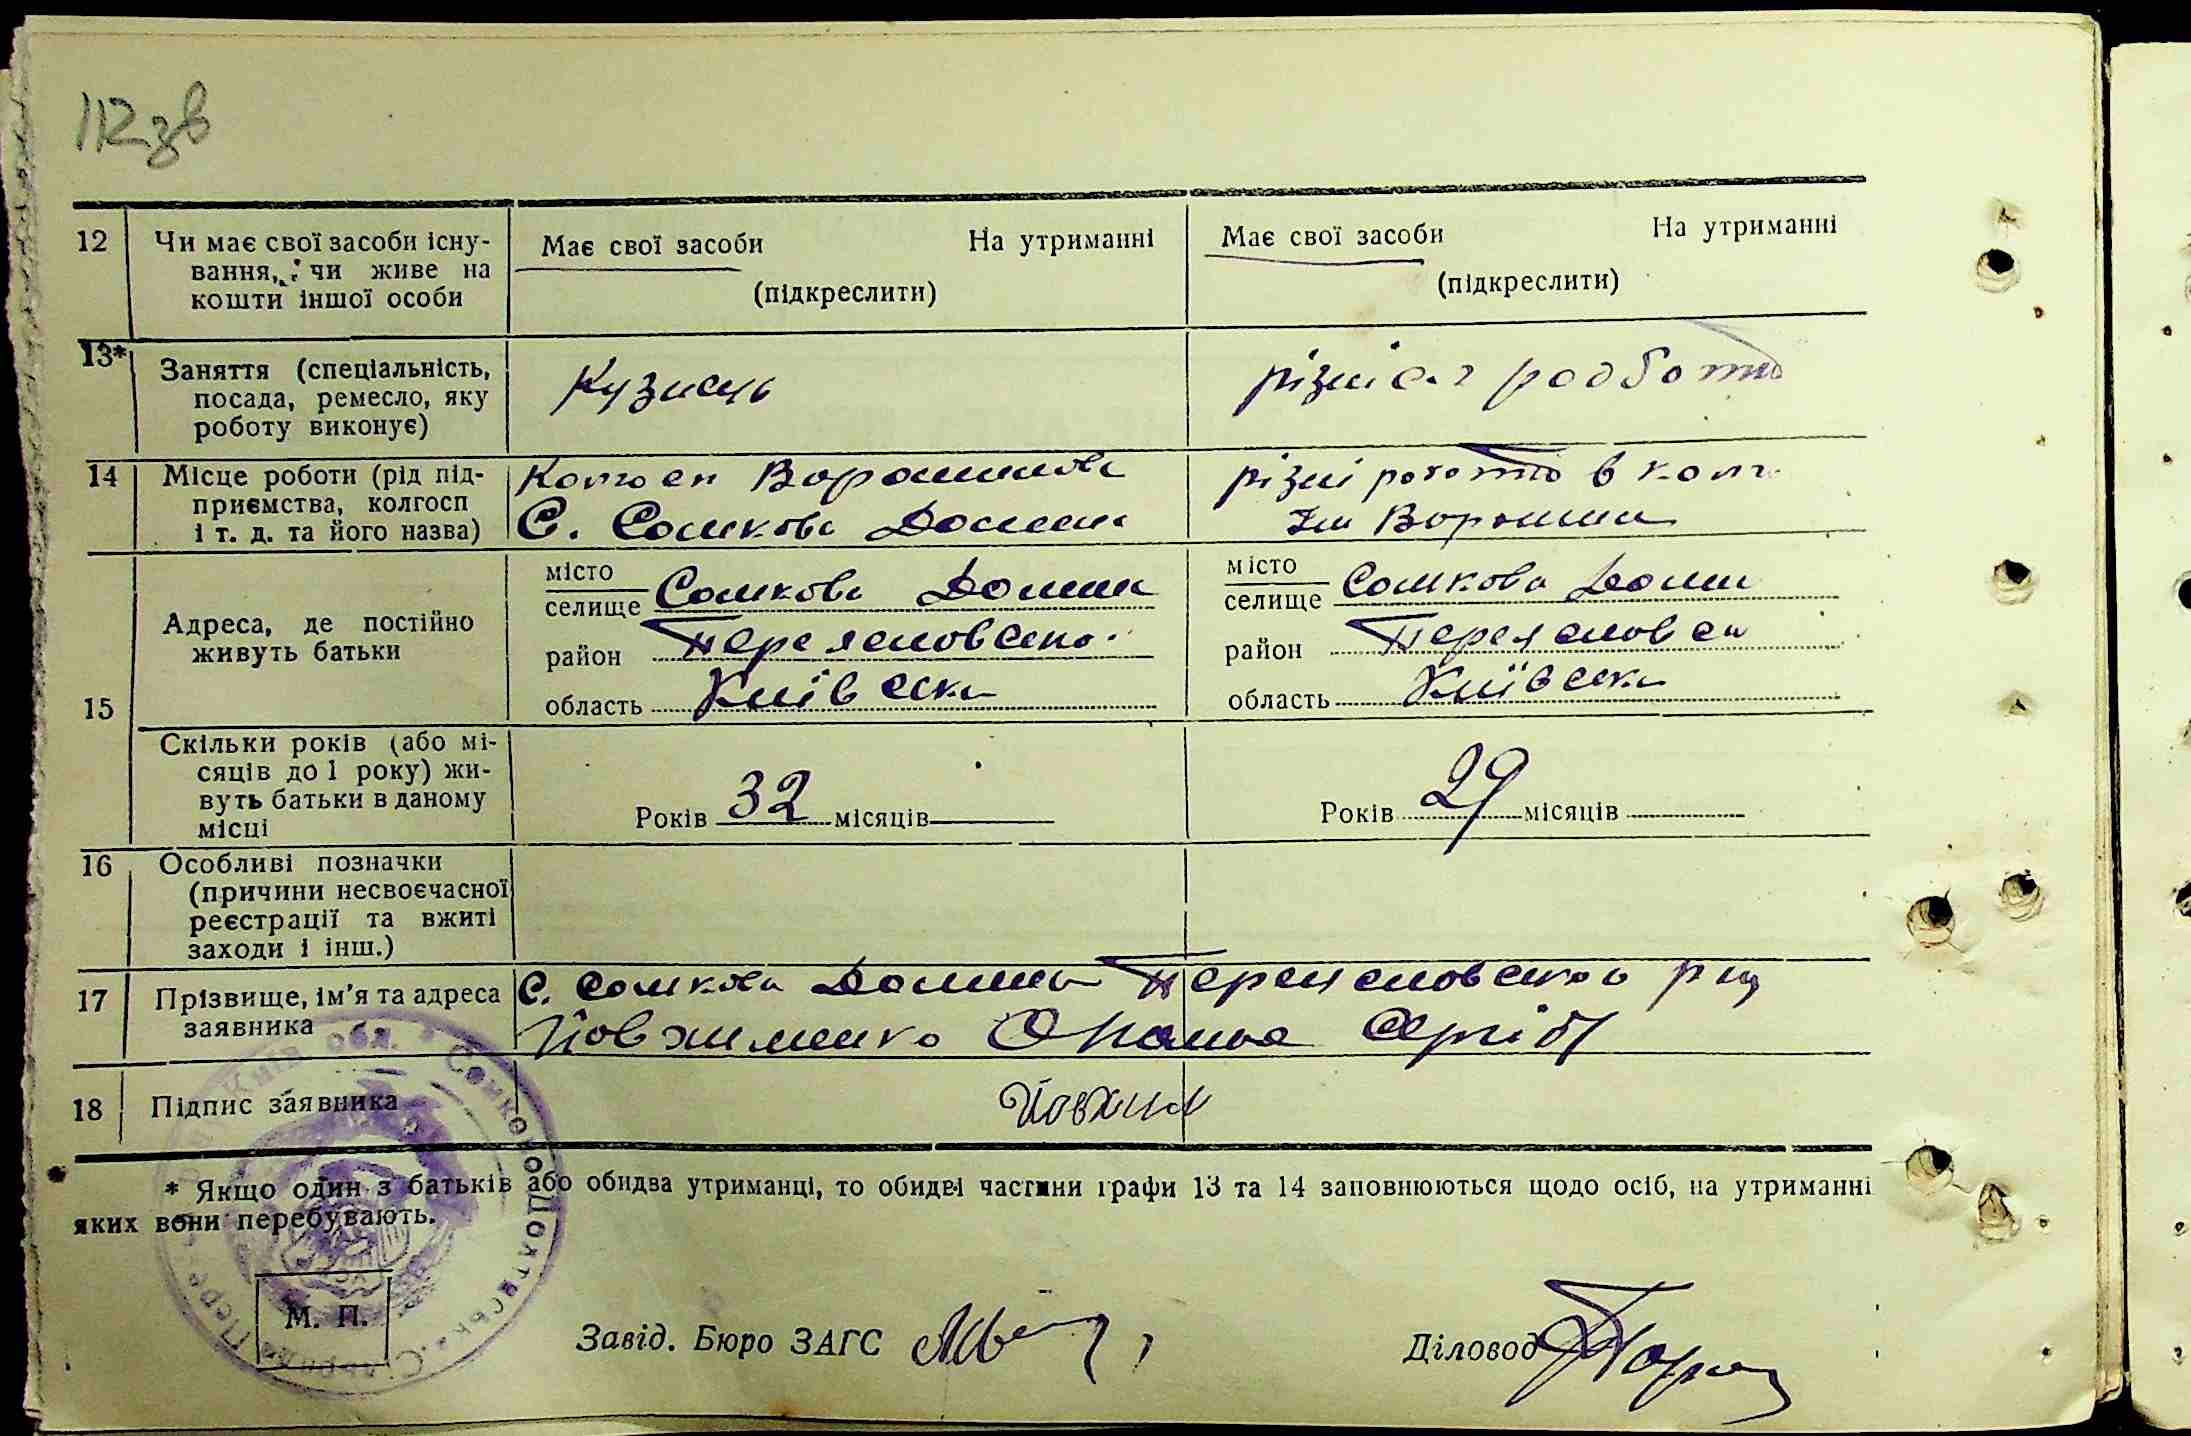 112 зв
12 Чи має свої засоби існу-
вання, чи живе на
кошти іншої особи
Має свої засоби На утриманні
(підкреслити)
Має свої засоби На утриманні
(підкреслити)
13* Заняття (спеціальність,
посада, ремесло, яку
роботу виконує)
Кузнець
різні роботи
14 Місце роботи (рід під-
приємства, колгосп
і т. д. та його назва)
Колгосп Ворошилова
С. Сомкова Долина
різні роботи в колг.
Ім Ворошил
15 Адреса, де постійно
живуть батьки
місто
селище Сомкова Долина
район Переяславсько
область Київськ
місто
селище Сомкова Долин
район Переяславськ
область Київськ
Скільки років (або мі-
сяців до 1 року) жи-
вуть батьки в даному
місці
Років 32 місяців
Років 29 місяців
16 Особливі позначки
(причини несвоєчасної
реєстрації та вжиті
заходи і інш.)
17 Прізвище, ім'я та адреса
заявника
С. Сомкова Долина Переяславського р-ну
Йовхименко Сергій
18 Підпис заявника
Йовхим
* Якщо один з батьків або обидва утриманці, то обидві частини графи 13 та 14 заповнюються щодо осіб, на утриманні
яких вони перебувають.
М. П.
Завід. Бюро ЗАГС
Діловод